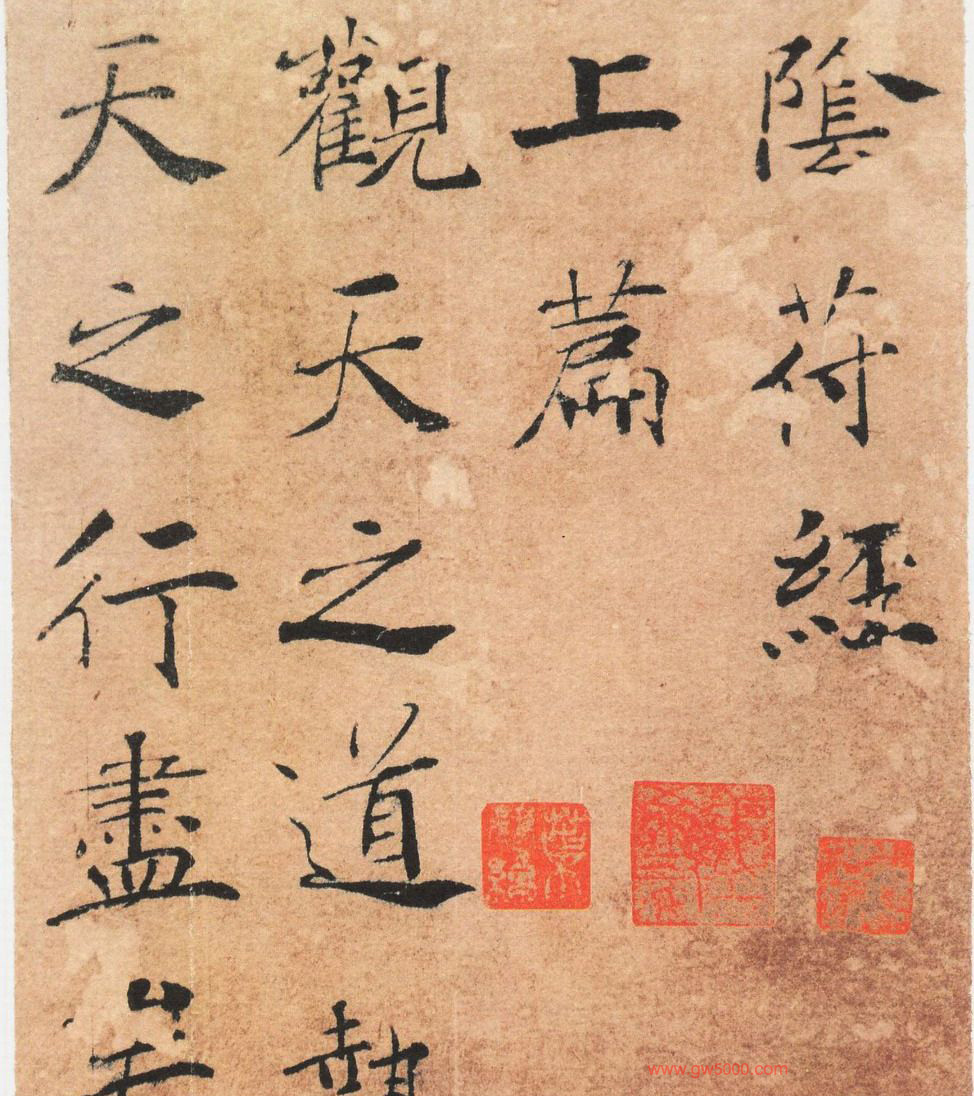 陰符經
上篇
觀天之道執
天之行盡矣
www.gw5000.com